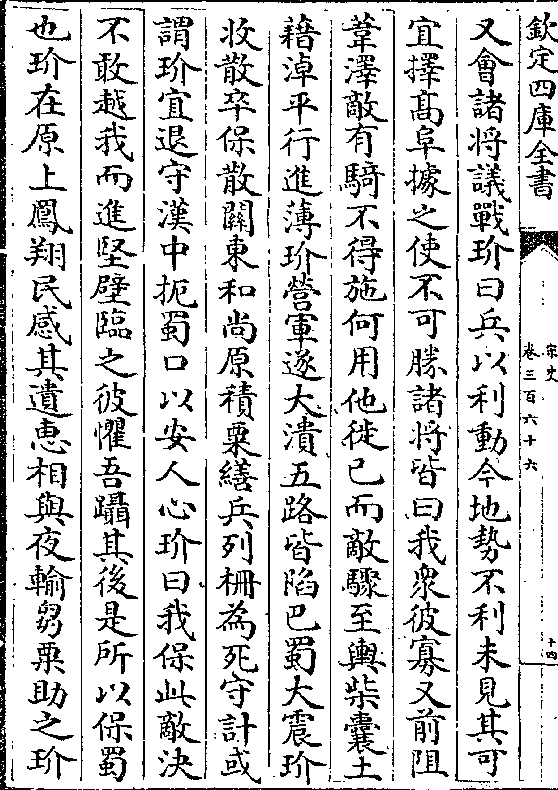 欽定四庫全書
宋史
卷三百六十六
十四
又會諸将議戰玠曰兵以利動今地勢不利未見其可
宜擇髙阜據之使不可勝諸将皆曰我衆彼寡又前阻
葦澤敵有騎不得施何用他徙已而敵驟至輿柴囊土
藉淖平行進薄玠營軍遂大潰五路皆陷巴蜀大震玠
收散卒保散關東和尚原積粟繕兵列柵為死守計或
謂玠宜退守漢中扼蜀口以安人心玠曰我保此敵決
不敢越我而進堅壁臨之彼懼吾躡其後是所以保蜀
也玠在原上鳳翔民感其遺惠相與夜輸芻粟助之玠